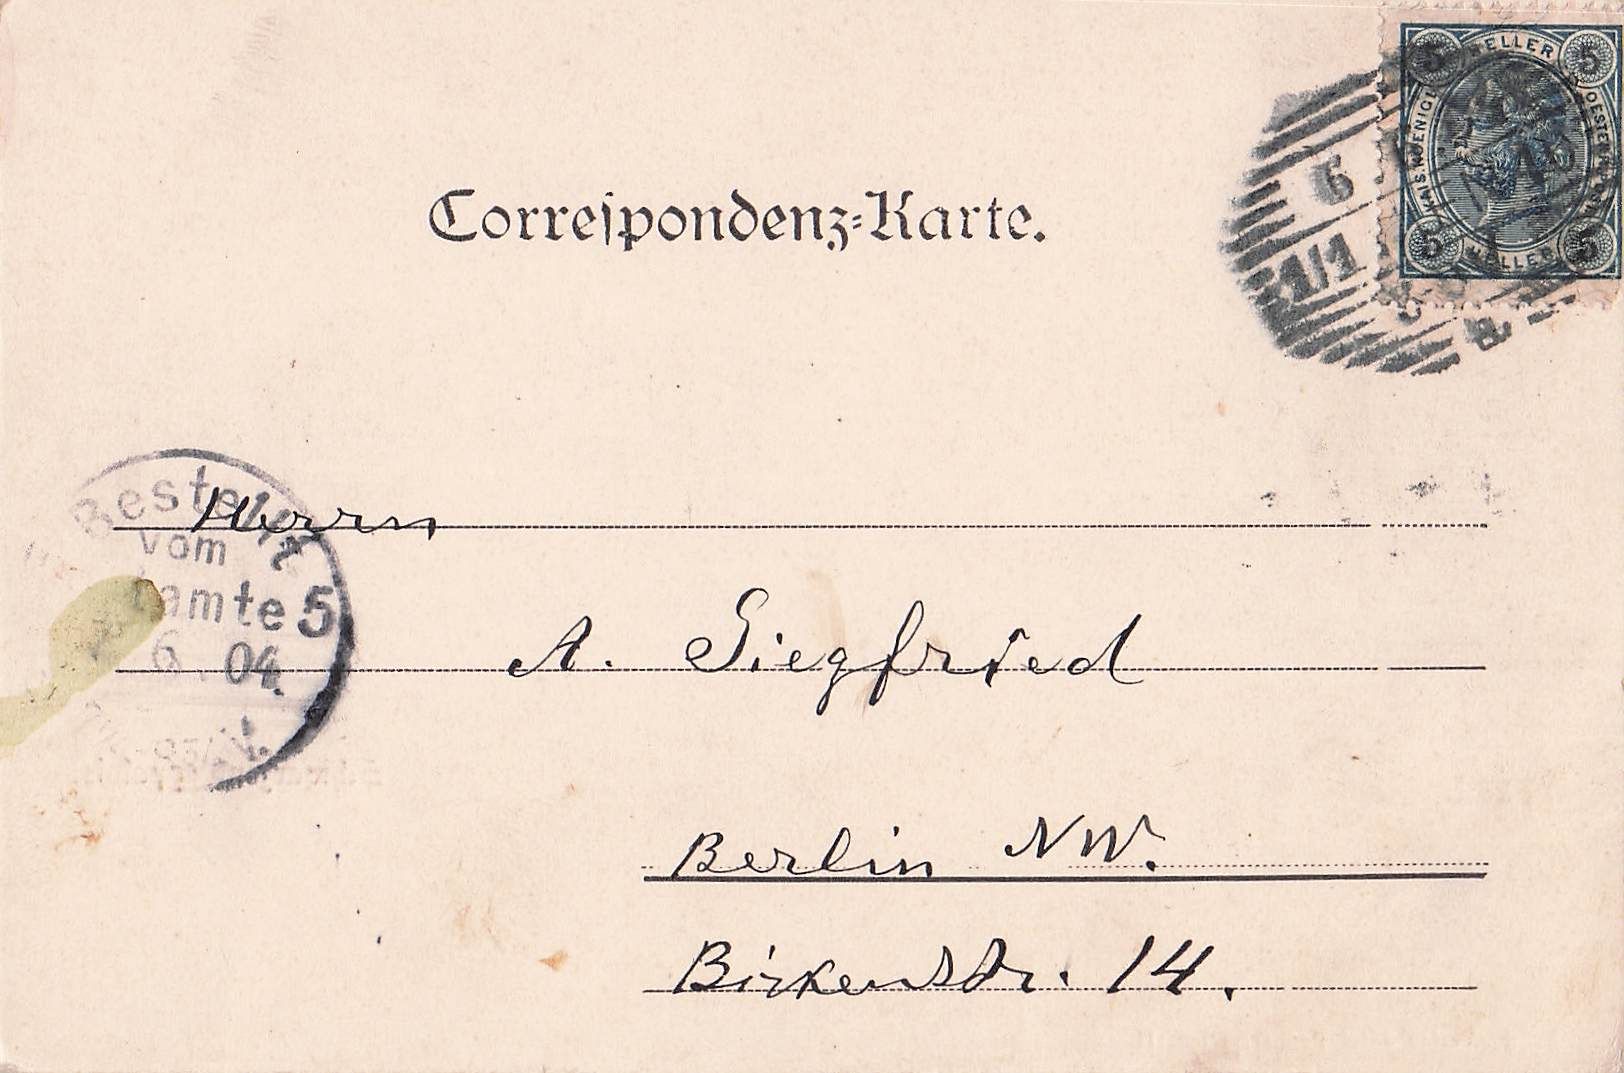 5 HELLER 5
KAIS. KOENIGL.
5 HELLER 5
6
1/1
Correspondenz-Karte.
Bestellt
vom
Postamte 5
6. 04.
Herrn
A. Siegfried
Berlin NW.
Birkenstr. 14.